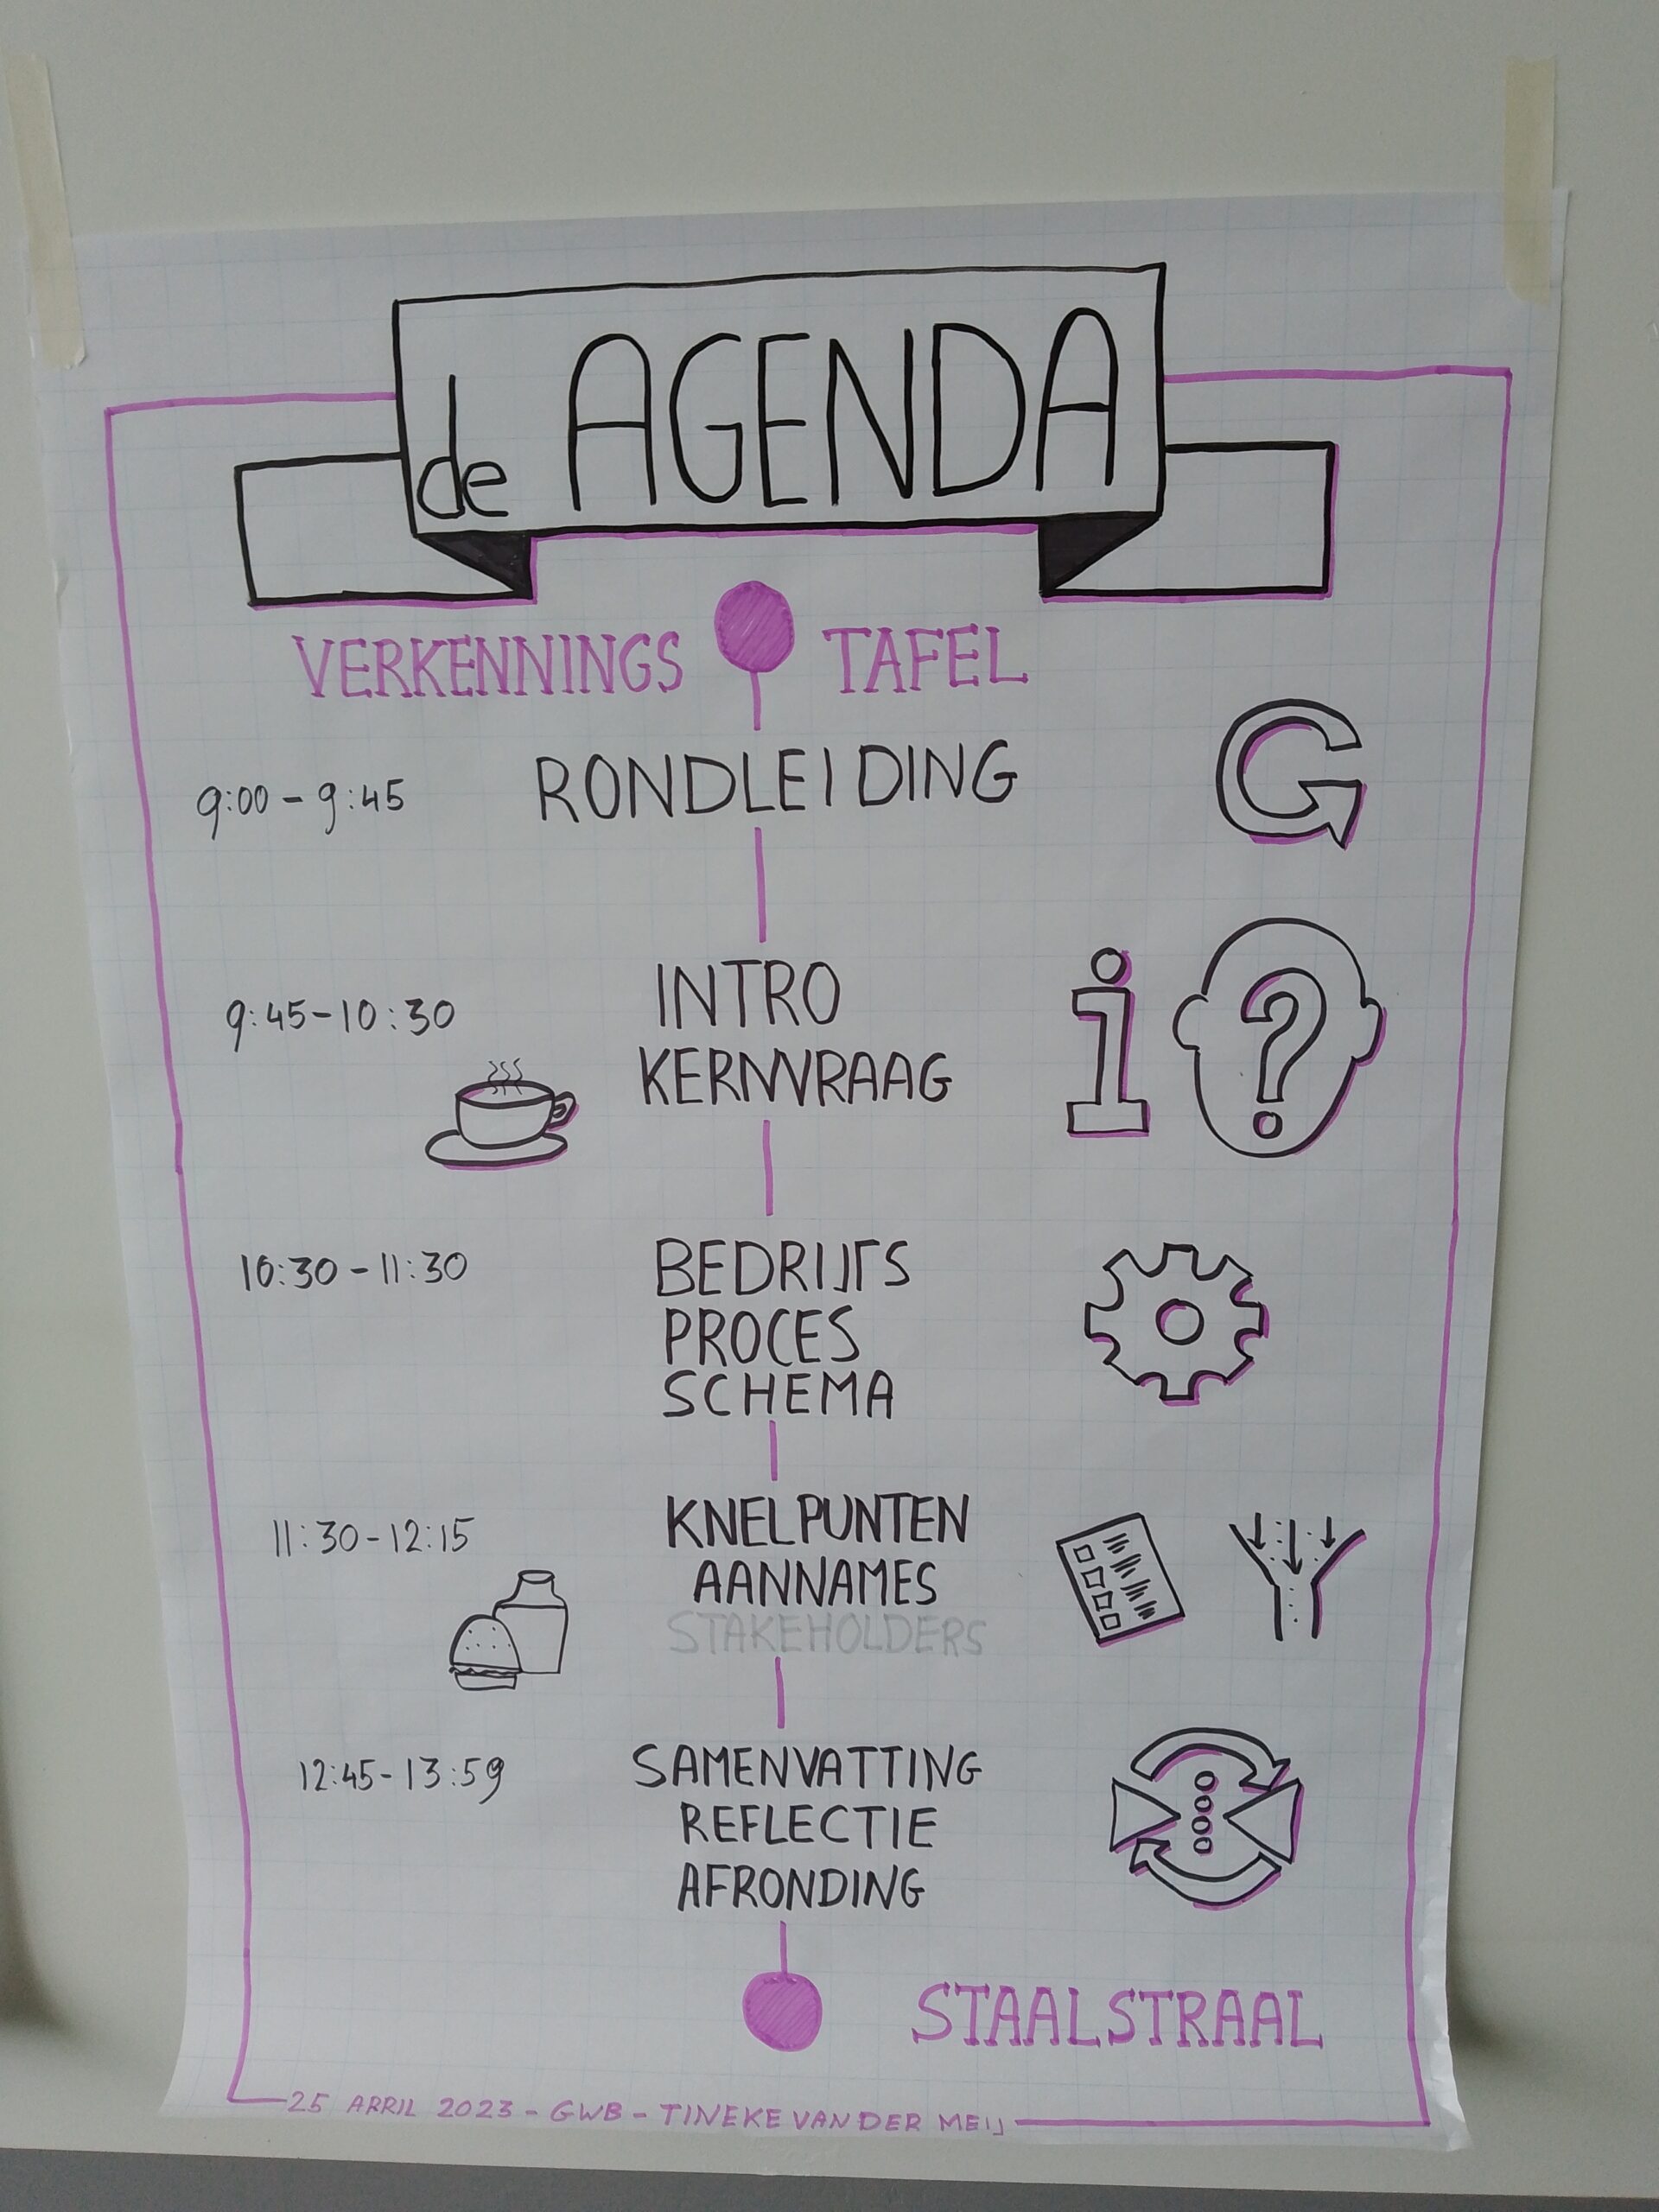 de AGENDA
VERKENNINGS TAFEL
9:00 - 9:45 RONDLEIDING
9:45 - 10:30 INTRO
KERNVRAAG
i ?
10:30 - 11:30 BEDRIJFS
PROCES
SCHEMA
11:30 - 12:15 KNELPUNTEN
AANNAMES
STAKEHOLDERS
12:45 - 13:59 SAMENVATTING
REFLECTIE
AFRONDING
STAALSTRAAL
25 APRIL 2023 - GWB - TINEKE VAN DER MEIJ